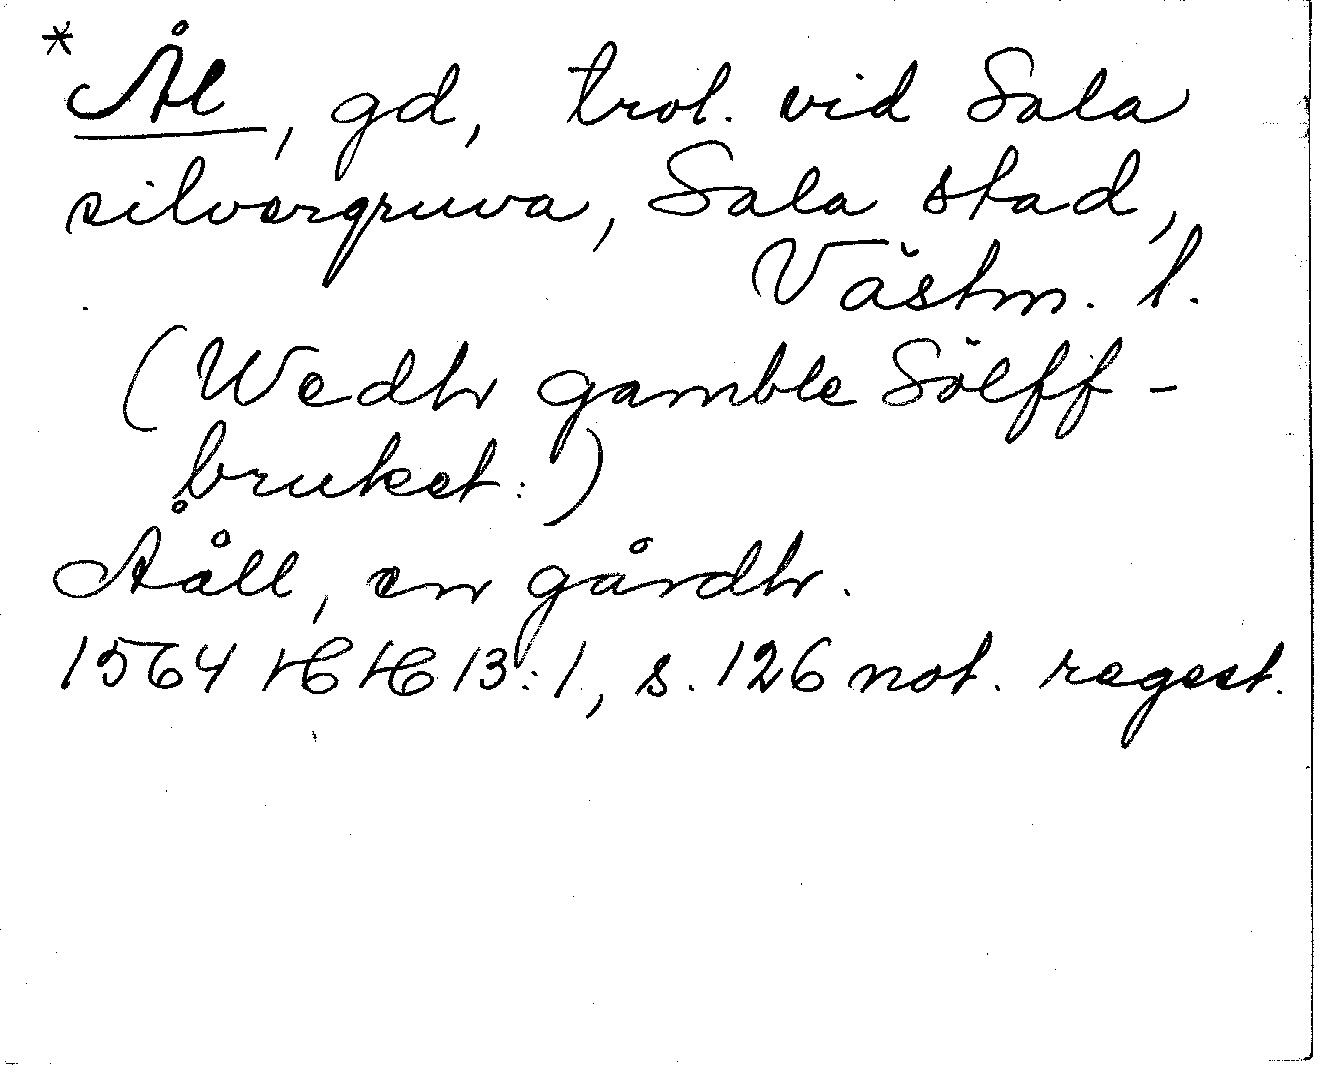 *Ål, gd, trol. vid Sala
silvergruva, Sala stad,
Västm. l.
(Wedhr gamble Sölff-
bruket:)
Ååll, en gårdhr.
1564 HH 13:1, s. 126 not. regest.